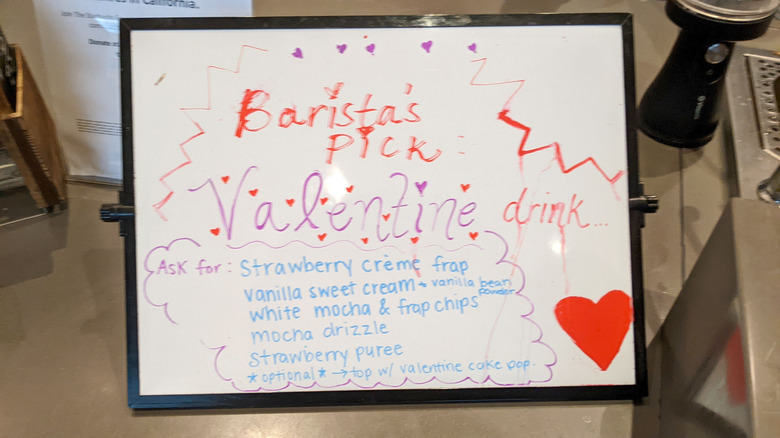 in California.
Barista's
Pick:
Valentine drink...
Ask for: strawberry crème frap
vanilla sweet cream + vanilla bean powder
white mocha & frap chips
mocha drizzle
strawberry puree
*optional* → top w/ valentine cake pop.